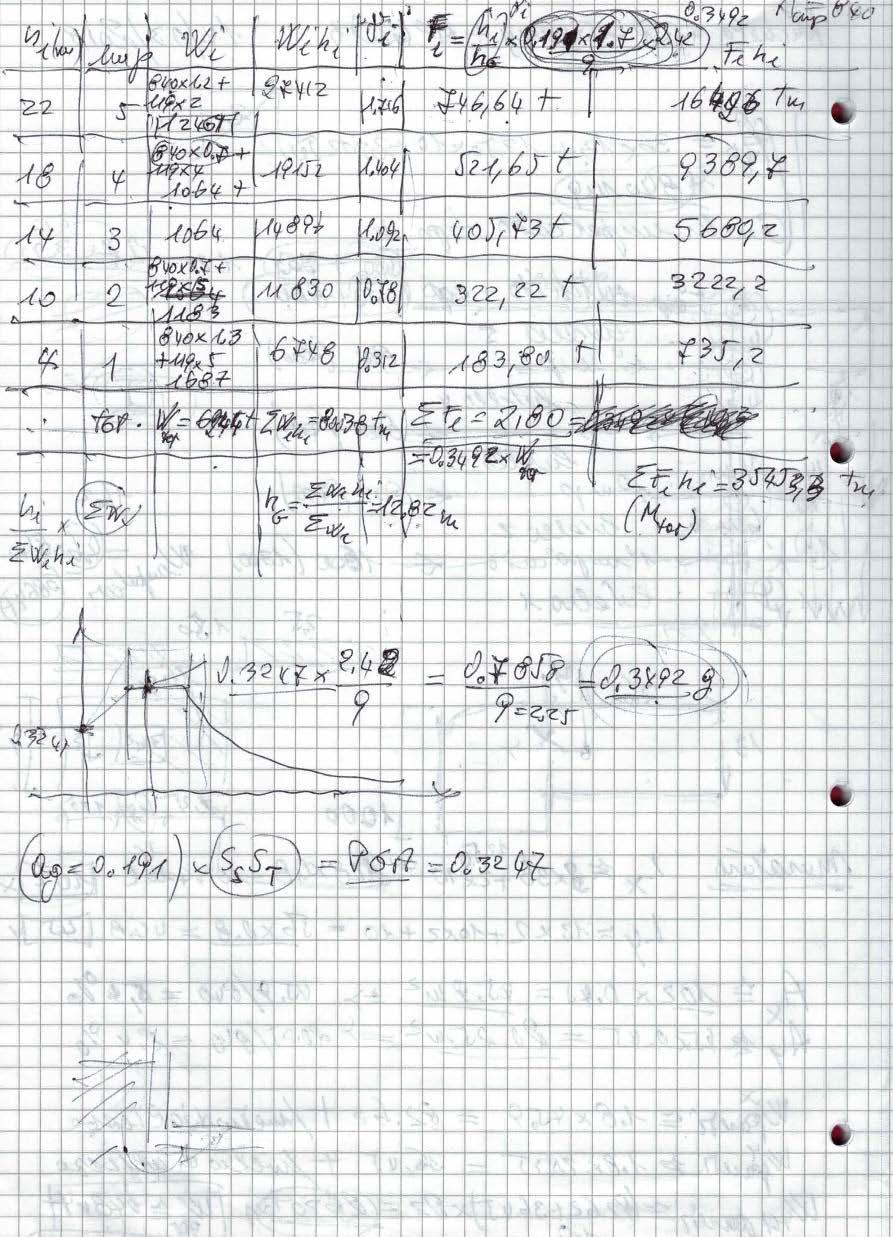 hi(m) Wi Wihi γi Fi = (hi/hG × 0.191 × 1.7 × 2.42) / q 0.3492 Fihi
22 5 840×1.2+ 119×2 1246 27412 1.716 746,64 t tm
18 4 840×0.7+ 119×4 1064 t 19152 1.404 521,65 t 9389,7
14 3 1064 14896 1.092 405,73 t 5680,2
10 2 840×0.7+ 119×5 1183 11830 0.78 322,22 t 3222,2
4 1 840×1.3 +119×5 1687 6748 0.312 183,80 t 735,2
tot. ΣWihi = 80038 tm ΣFi = 2,180 =
= 0.3492 × Wtot
hi/ΣWihi × ΣWi hG = ΣWihi/ΣWi = 12,82 m ΣFihi = tm
(Mtot)
0.3247 × 2.42/q = 0.7858/q=2.25 = 0.3492 g
0.3247
(ag = 0.191) × (SS ST) = PGA = 0.3247